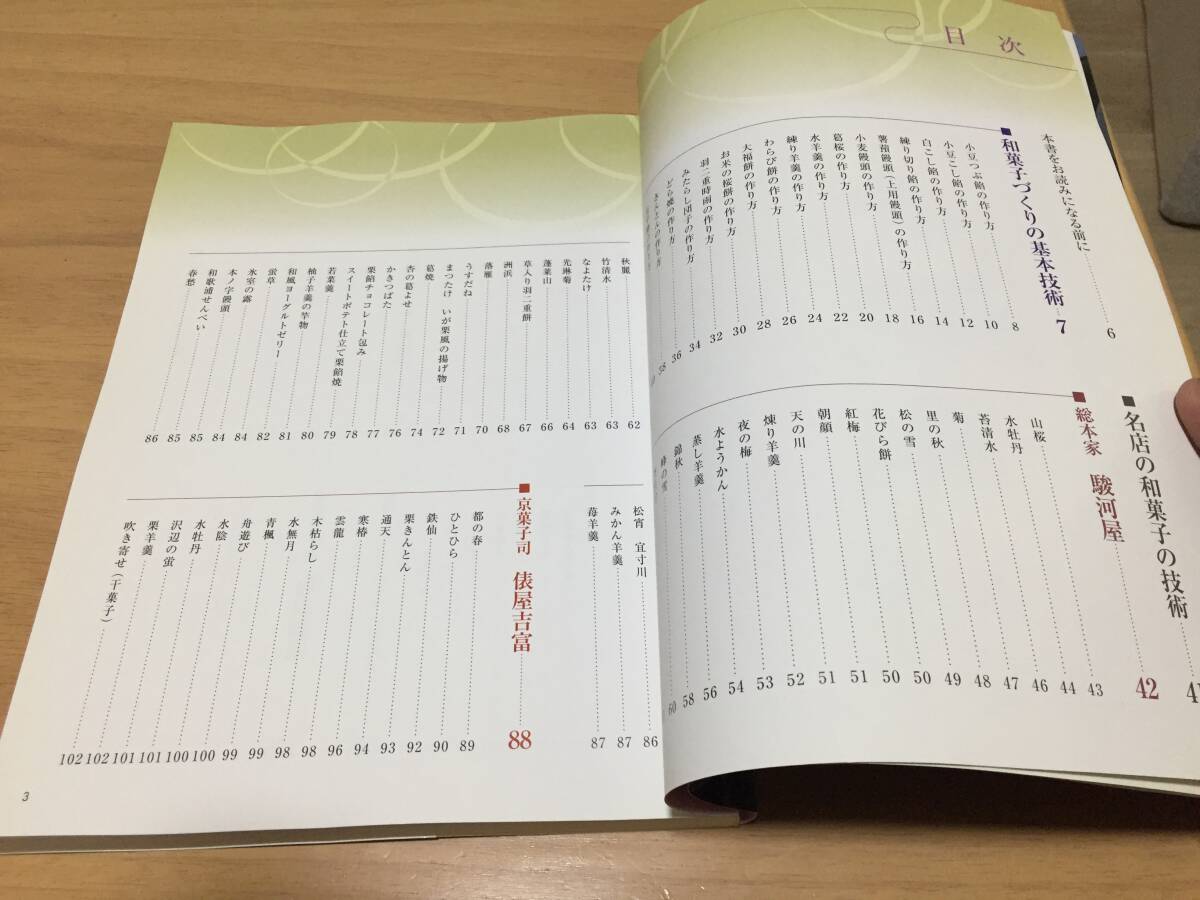 目次
本書をお読みになる前に 6
■和菓子づくりの基本技術 7
小豆つぶ餡の作り方 8
小豆こし餡の作り方 10
白こし餡の作り方 12
練り切り餡の作り方 14
薯蕷饅頭(上用饅頭)の作り方 16
小麦饅頭の作り方 18
葛桜の作り方 20
水羊羹の作り方 22
練り羊羹の作り方 24
わらび餅の作り方 26
大福餅の作り方 28
お米の桜餅の作り方 30
羽二重時雨の作り方 32
みたらし団子の作り方 34
どら焼の作り方 36
きんとんの作り方 38
■名店の和菓子の技術 41
■総本家 駿河屋 42
山桜 43
水牡丹 44
苔清水 46
菊 47
里の秋 48
松の雪 49
花びら餅 50
紅梅 50
朝顔 51
天の川 51
煉り羊羹 52
夜の梅 53
水ようかん 54
蒸し羊羹 56
錦秋 58
峰の雪 60
秋麗 62
竹清水 63
なよたけ 63
光琳菊 64
蓬莱山 66
草入り羽二重餅 67
洲浜 68
落雁 70
うすだね 71
まつたけ いが栗風の揚げ物 72
葛焼 74
杏の葛よせ 76
かきつばた 77
栗餡チョコレート包み 78
スイートポテト仕立て栗餡焼 79
若菜羹 80
柚子羊羹の竿物 81
和風ヨーグルトゼリー 82
蛍草 84
氷室の露 84
本ノ字饅頭 85
和歌浦せんべい 85
春愁 86
松宵 宜寸川 86
みかん羊羹 87
苺羊羹 87
■京菓子司 俵屋吉富 88
都の春 89
ひとひら 90
鉄仙 92
栗きんとん 93
通天 94
寒椿 96
雲龍 98
木枯らし 98
水無月 99
青楓 99
舟遊び 100
水陰 100
水牡丹 101
沢辺の蛍 101
栗羊羹 102
吹き寄せ(干菓子) 102
3